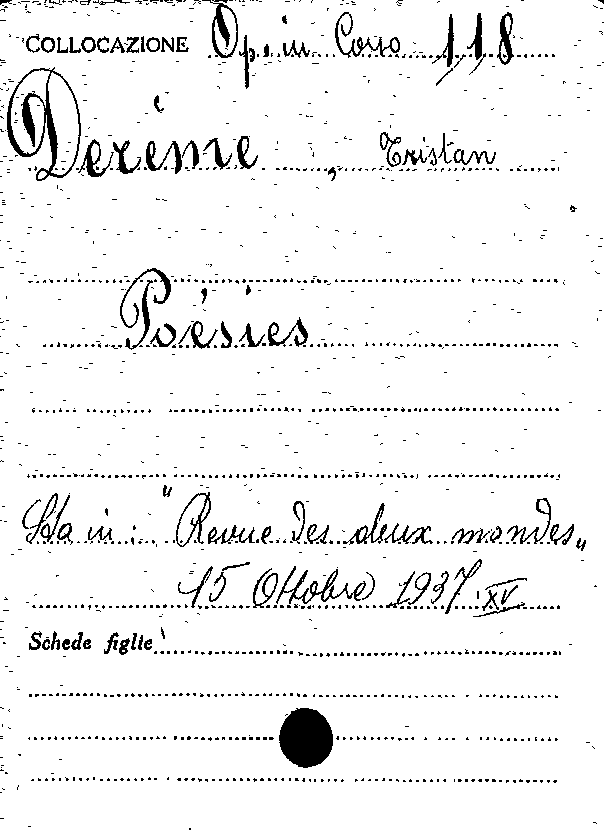 COLLOCAZIONE Op. in Corso 1,1,8
Derème, Tristan
Poésies
Sta in: "Revue des deux mondes„
15 Ottobre 1937 XV
Schede figlie